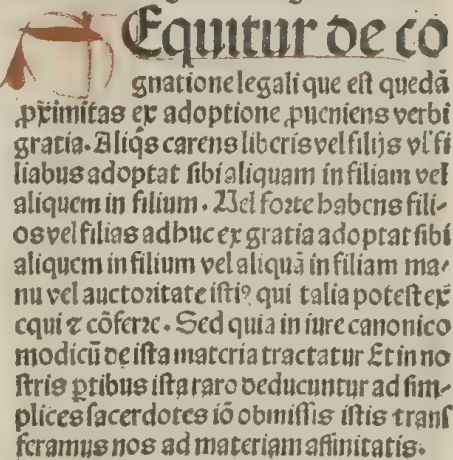 Equitur de co
gnatione legali que est quedā
ꝓximitas ex adoptione ꝓueniens verbi
gratia. Aliq̄s carens liberis vel filijs vl' fi
liabus adoptat sibi aliquam in filiam vel
aliquem in filium. Uel forte habens fili-
os vel filias adhuc ex gratia adoptat sibi
aliquem in filium vel aliquā in filiam ma-
nu vel auctoritate istiꝰ qui talia potest ex
equi ⁊ cōferre. Sed quia in iure canonico
modicū de ista materia tractatur Et in no
stris ꝑtibus ista raro deducuntur ad sim-
plices sacerdotes iō obmissis istis trans
feramus nos ad materiam affinitatis.